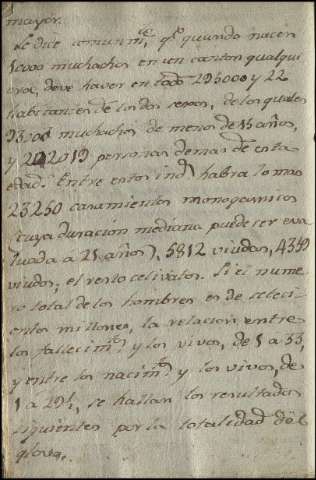 mayor.
Se dice comunmte, qe quando nacen
1000 muchachos en un canton qualqui
era, deve haver en todo 295000 y 22
habitantes de los dos sexos, de los quales
93.00 muchachos de menos de 15 años,
y 202019 personas demas de esta
edad. Entre estos inds habra lo mas
23250 casamientos monogamicos
(cuya duracion mediana puede ser eva
luada a 21 años), 5812 viudas, 4359
viudos; el resto celivatos. Si el nume
ro total de los hombres es de seteci
entos millones, la relacion entre
los fallecimtos y los vivos, de 1 a 33,
y entre los nacimtos y los vivos, de
1 a 29½, se hallan los resultados
siguientes por la totalidad del
globo.